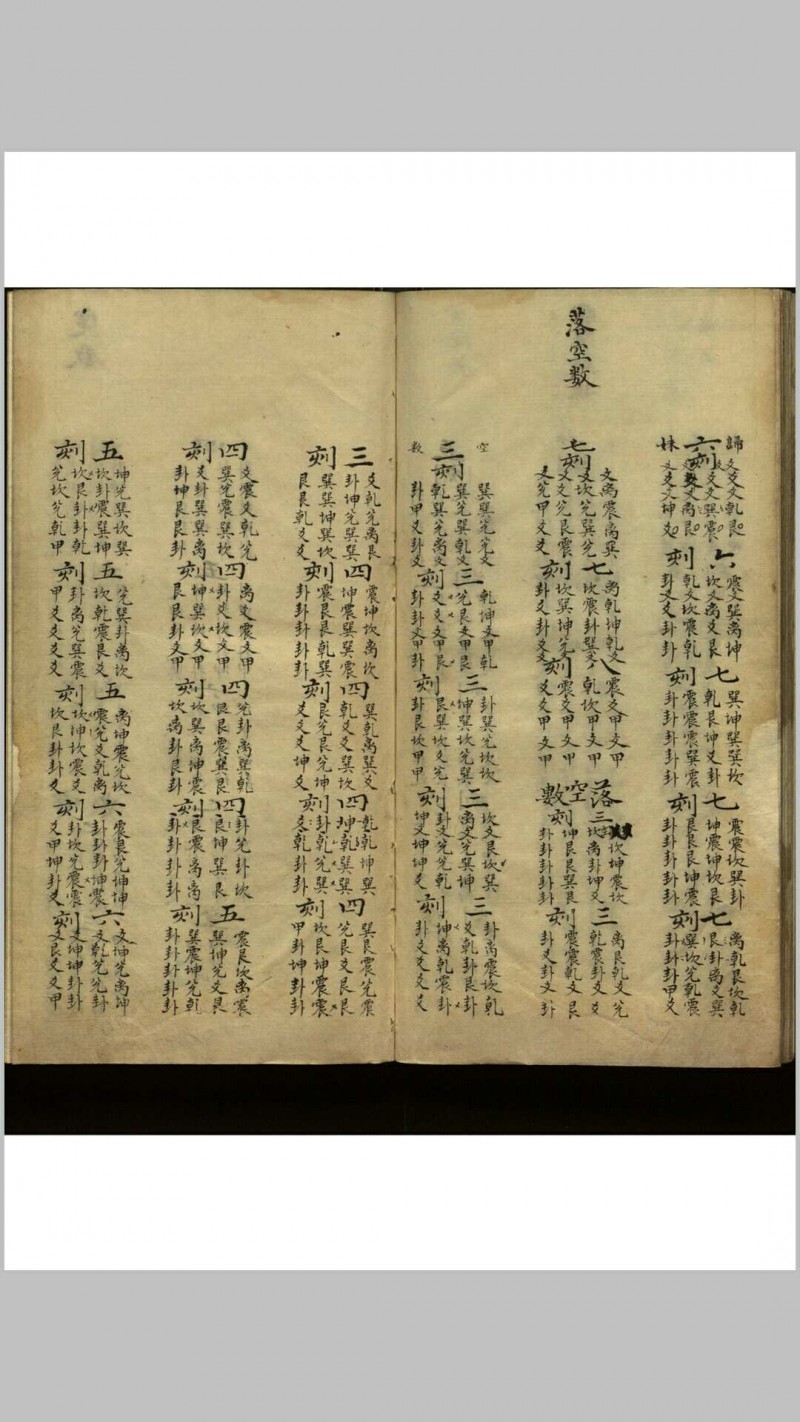 落空数
歸妹
六刻
六刻
震爻巽离坤
坎爻离爻艮
乾爻坎震乾
卦爻爻卦卦
七刻
巽坤巽巽坎
乾艮坤爻卦
震震震震巽
卦卦卦卦卦
七刻
震震坎巽卦
坤震坤坎艮
艮艮艮坤震
卦卦卦卦卦
七刻
离乾艮坎乾
艮卦离爻巽
巽坎兌乾震
卦卦卦甲爻
七刻
爻离震离巽
爻坎兌巽兌
爻爻兌艮震
爻兌甲爻爻
七刻
离乾坤乾爻
坎震卦巽爻
坎巽坤兌
卦爻卦卦
八刻
震爻甲爻甲
乾坎甲爻甲
震爻甲爻甲
爻爻甲爻甲
落空數
三刻
坎坤震坎
坎离卦坤爻
坤艮艮巽艮
卦卦卦卦卦
三刻
离艮乾爻兌
乾震卦爻爻
震震乾爻艮
卦爻卦爻卦
空数
三刻
巽巽兌兌爻
巽兌巽乾爻
乾巽兌离爻
卦甲爻卦爻
三刻
乾坤爻甲乾
兌艮爻甲艮
爻爻爻甲艮
卦卦爻甲卦
三刻
卦巽兌坎坎
坤巽坎兌巽
艮巽坎爻兌
卦艮坎甲甲
三刻
坎爻艮坎巽
离爻兌巽坤
卦爻兌兌乾
坤爻坤坤爻
三刻
卦离震坎乾
爻乾卦艮卦
坤离乾震卦
卦爻爻爻爻
三刻
爻乾兌离艮
卦坤兌巽巽
巽巽坤巽坎
艮艮乾爻爻
四刻
震坤坎离坎
坤震巽巽震
震艮艮乾巽
卦卦卦卦卦
四刻
巽乾离巽爻
乾爻爻巽坎
艮兌艮兌坤
爻爻爻坤爻
四刻
乾乾坤巽
坤乾巽巽
卦乾兌巽
爻乾卦卦
四刻
巽艮震兌震
兌艮爻艮艮
坎艮坤震震
甲卦坤卦卦
四刻
爻震爻乾兌
巽兌震巽坎
爻卦巽巽离
卦坤艮艮卦
四刻
离爻震爻甲
卦爻坎爻甲
坤巽坎爻甲
艮艮卦爻甲
四刻
兌卦离巽乾
艮艮震巽艮
坎巽离坤震
坎离卦艮卦
四刻
卦兌卦坎
艮坤巽艮
艮震离离
卦卦卦卦
五刻
震艮坎离震
巽坤兌爻艮
巽震坤兌乾
卦卦卦卦卦
五刻
坤兌巽坎巽
坎卦震巽坤
坎艮卦卦乾
兌坎兌乾甲
五刻
兌巽卦离坎
坎乾震艮爻
卦离兌巽震
甲爻爻爻爻
五刻
离坤震兌坎
震兌爻乾离
坎坤坎震爻
坎艮卦卦卦
六刻
震艮兌坤坤
卦卦卦坤震
卦坎兌震震
爻甲坤卦爻
六刻
爻坤兌离坤
爻乾兌兌卦
爻坤坤卦卦
爻艮爻爻甲